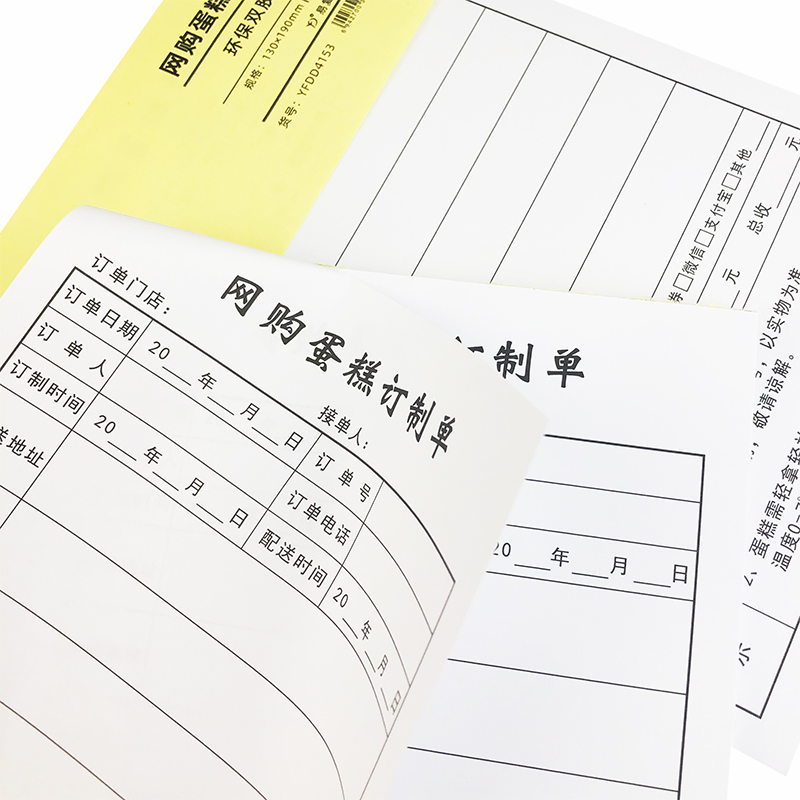 网购蛋糕
环保双胶
规格：130×190mm
货号：YFDD4153
易
券□微信□支付宝□其他___元
总收___元
元
，以实物为准
，敬请谅解。
、蛋糕需轻拿轻
温度0-
示
网购蛋糕订制单
订单门店：
接单人：
订单日期 20___年___月___日 订单号
订单人 订单电话
订制时间 20___年___月___日 配送时间 20___年___月___日
送地址
订制单
20___年___月___日